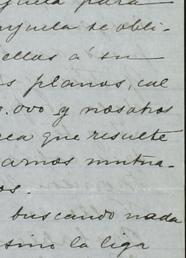 para
se obli-
ellas á su
planos, cal
y nosotros
que resulte
mutua-
os.
buscando nada
sino la liga